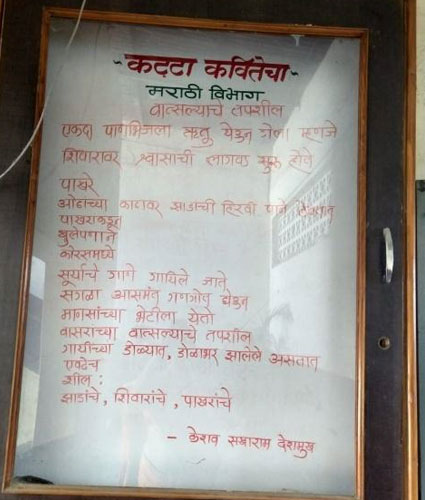 ~ कट्टा कवितेचा ~
मराठी विभाग
वात्सल्याचे तपशील
एकदा पानभिजला ऋतु येऊन गेला म्हणजे
शिवारावर श्वासाची लागवड सुरू होते
पाखरे
ओठांच्या काठावर झाडाची हिरवी पाने ठेवतात
पाखरांकडून
खुलेपणाने
कोरसमध्ये
सूर्याचे गाणे गायिले जाते
सगळा आसमंत गणगोत होऊन
माणसांच्या भेटीला येतो
वासराच्या वात्सल्याचे तपशील
गायीच्या डोळ्यात, डोळाभर झालेले असतात
एवढेच
शील :
झाडांचे, शिवारांचे, पाखरांचे
– केशव सखाराम देशमुख